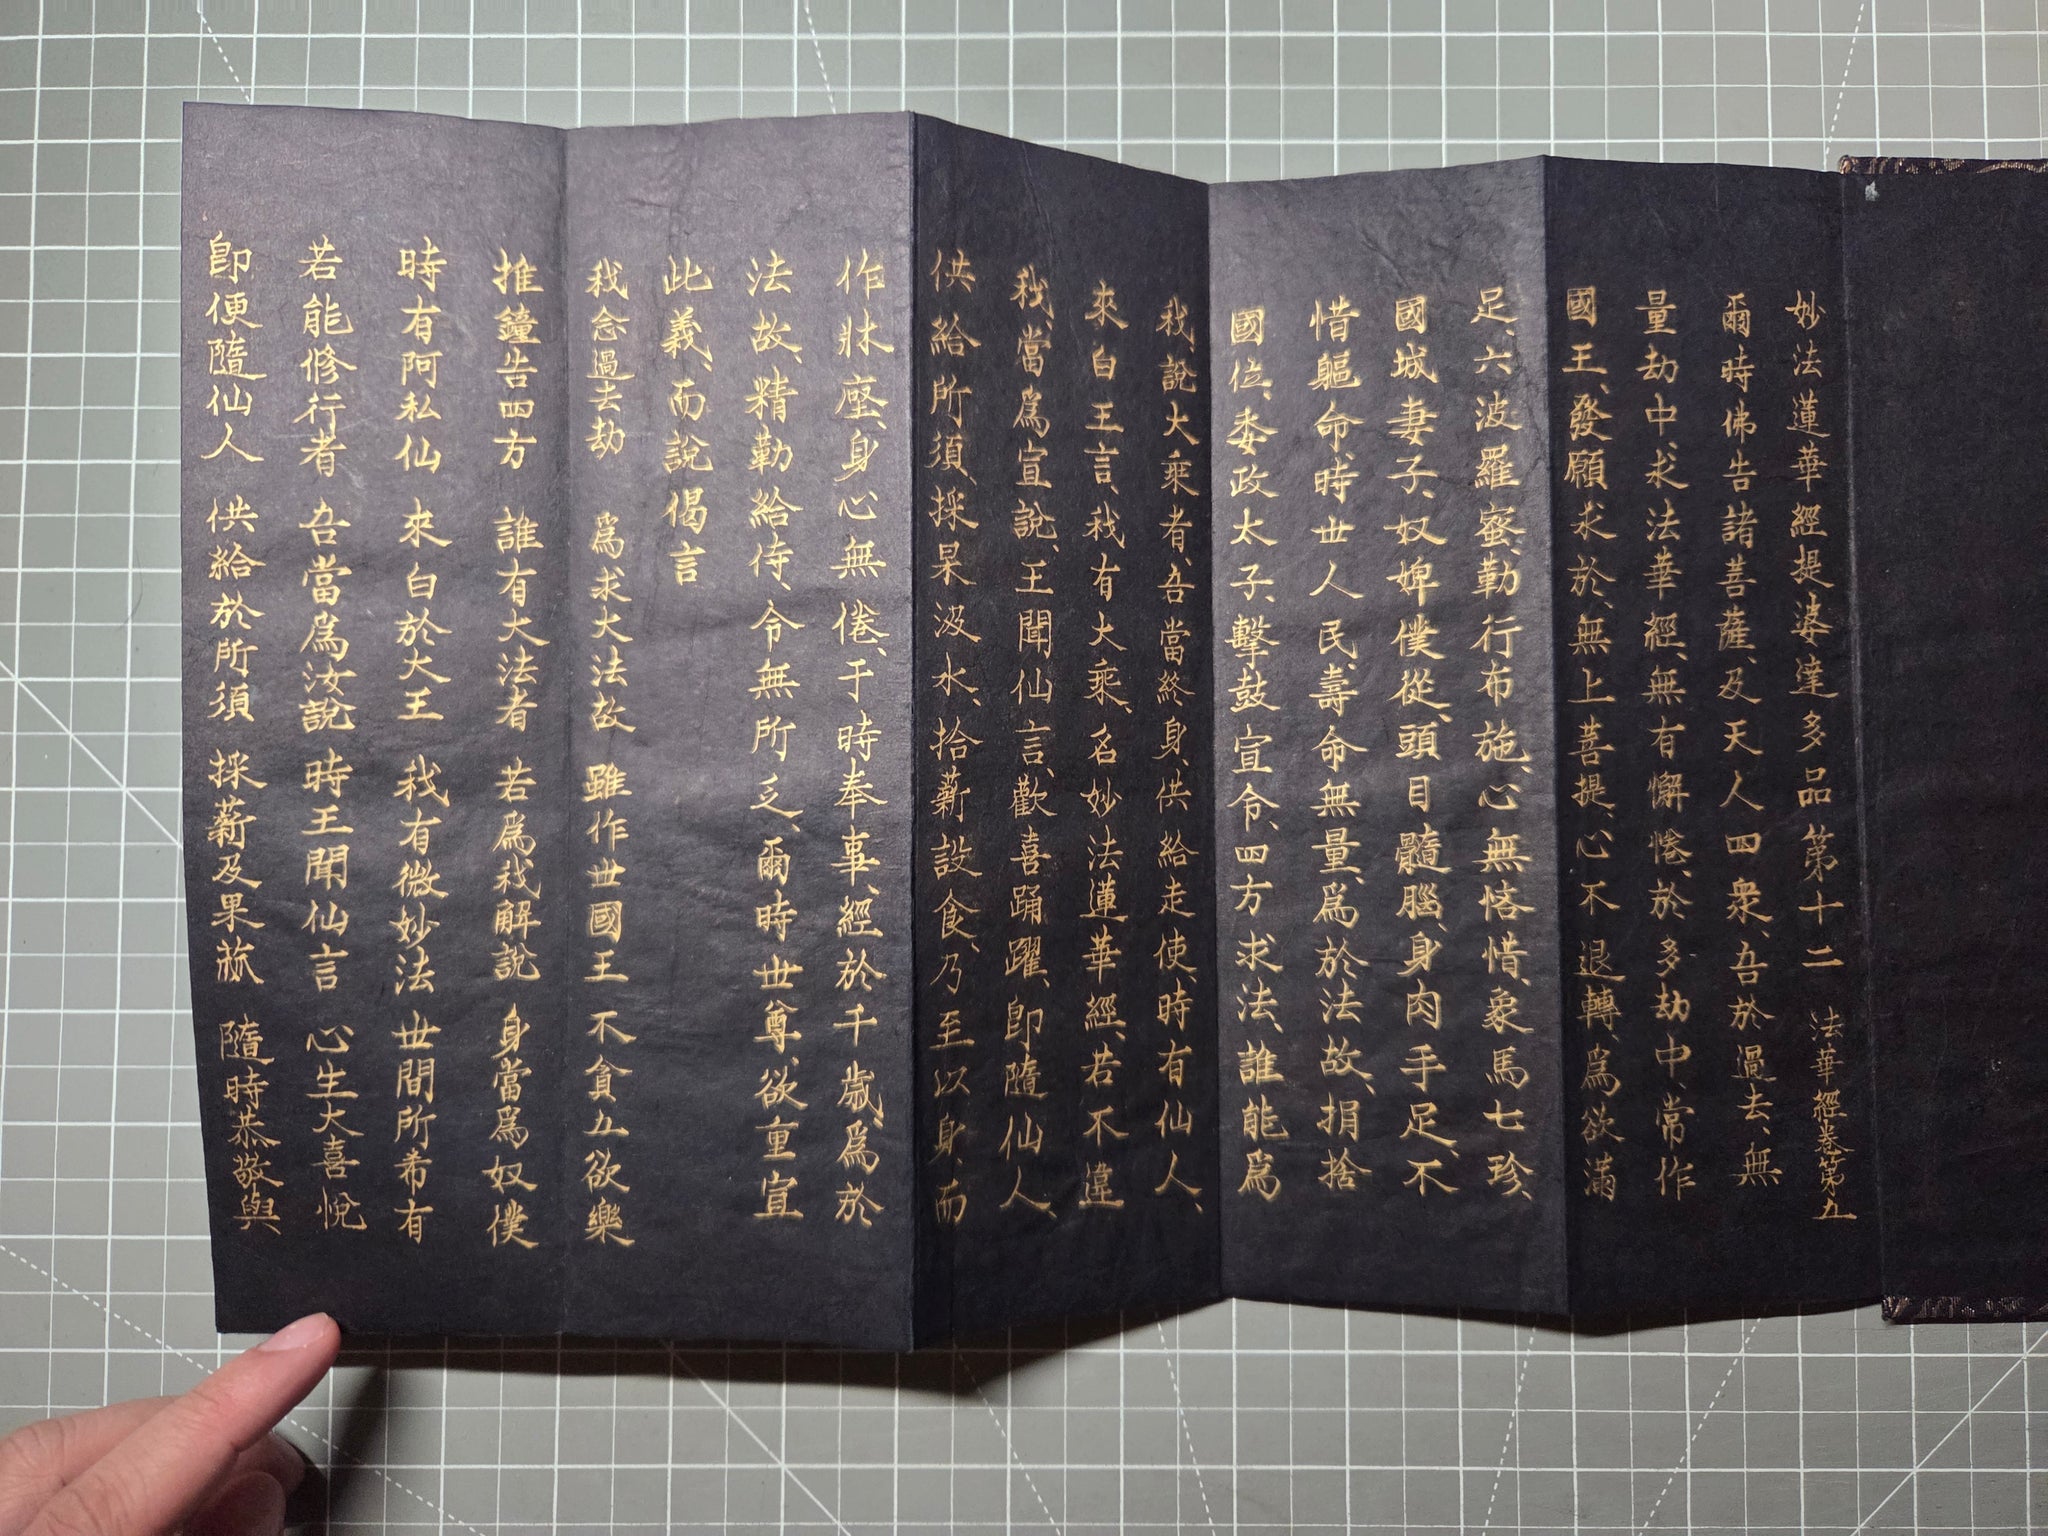 妙法蓮華經提婆達多品第十二 法華經卷第五
爾時佛告諸菩薩、及天人四衆、吾於過去、無
量劫中、求法華經、無有懈惓、於多劫中、常作
國王、發願求於、無上菩提、心不退轉、爲欲滿
足、六波羅蜜、勤行布施、心無悋惜、象馬七珍、
國城妻子、奴婢僕從、頭目髓腦、身肉手足、不
惜軀命、時世人民、壽命無量、爲於法故、捐捨
國位、委政太子、擊鼓宣令、四方求法、誰能爲
我、說大乘者、吾當終身、供給走使、時有仙人、
來白王言、我有大乘、名妙法蓮華經、若不違
我、當爲宣說、王聞仙言、歡喜踊躍、卽隨仙人、
供給所須、採果汲水、拾薪設食、乃至以身、而
作牀座、身心無惓、于時奉事、經於千歲、爲於
法故、精勤給侍、令無所乏、爾時世尊、欲重宣
此義、而說偈言
我念過去劫 爲求大法故 雖作世國王 不貪五欲樂
推鐘告四方 誰有大法者 若爲我解說 身當爲奴僕
時有阿私仙 來白於大王 我有微妙法 世間所希有
若能修行者 吾當爲汝說 時王聞仙言 心生大喜悅
卽便隨仙人 供給於所須 採薪及果蓏 隨時恭敬與